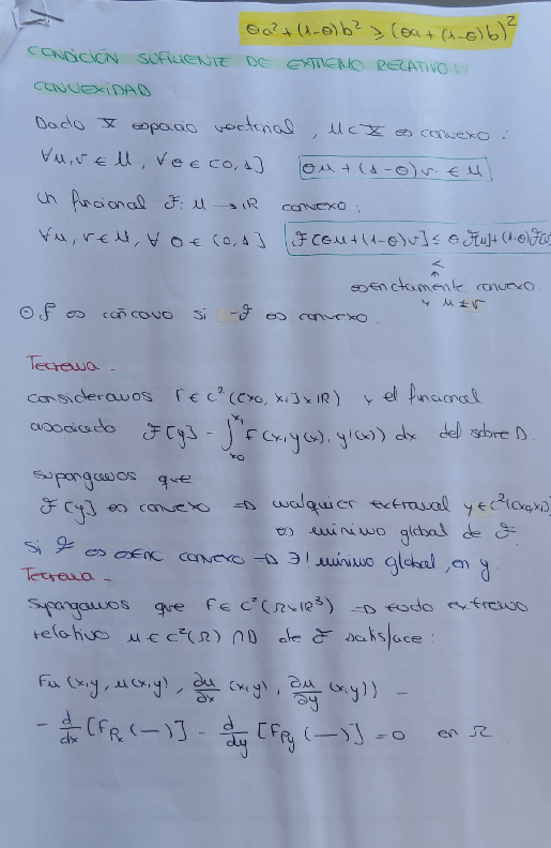 θa² + (1-θ)b² ≥ (θa + (1-θ)b)²
CONDICIÓN SUFICIENTE DE EXTREMO RELATIVO:
CONVEXIDAD
Dado X espacio vectorial, U ⊂ X es convexo:
∀u, v ∈ U, ∀θ ∈ [0,1] θu + (1-θ)v ∈ U
Un funcional F: U → ℝ convexo:
∀u, v ∈ U, ∀ θ ∈ [0,1] F[θu + (1-θ)v] ≤ θF[u] + (1-θ)F[v]
<
↑
estrictamente convexo
y u ≠ v
⊙ F es cóncavo si -F es convexo.
Teorema -
Consideramos F ∈ C²([x₀, x₁] × ℝ) y el funcional
asociado F[y] = ∫ₓ₀^x₁ F(x, y(x), y'(x)) dx def sobre D.
Supongamos que
F[y] es convexo ⇒ cualquier extremal y ∈ C²([x₀,x₁])
es mínimo global de F.
Si F es estric convexo ⇒ ∃! mínimo global, en y
Teorema -
Supongamos que F ∈ C²(Ω×ℝ³) ⇒ todo extremo
relativo u ∈ C²(Ω) ∩ D de F satisface:
Fu (x, y, u(x,y), ∂u/∂x (x,y), ∂u/∂y (x,y)) -
- d/dx [F_Px (—)] - d/dy [F_Py (—)] = 0 en Ω